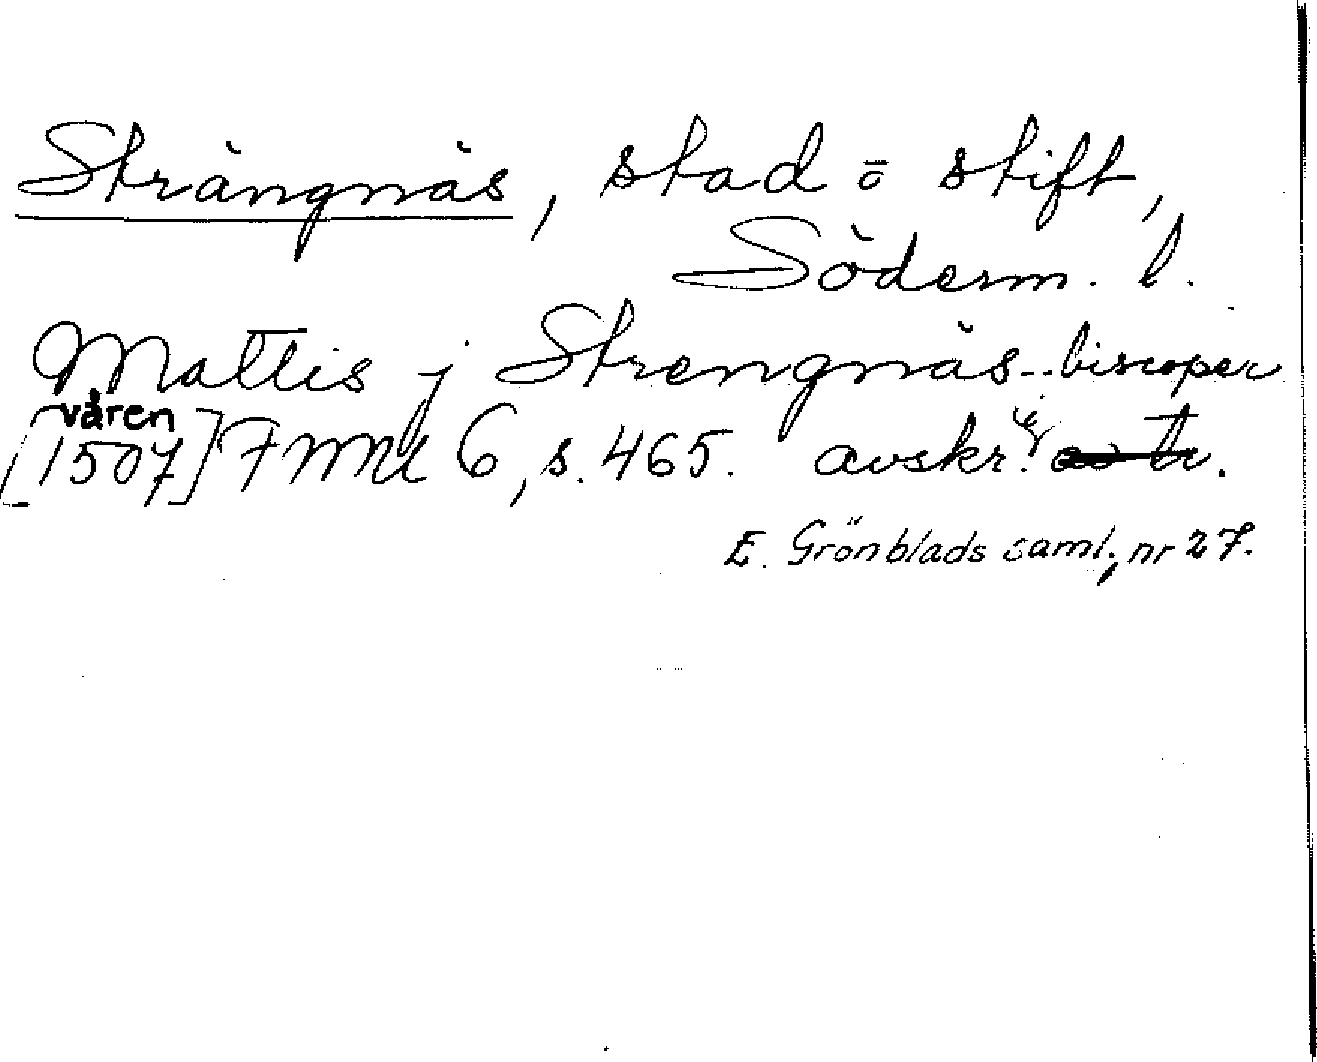 Strängnäs, stad o stift,
Söderm. l.
Mattis j Strengnäs.. biscoper
[våren 1507] FMU 6, s. 465. avskr. i
E. Grönblads saml., nr 27.